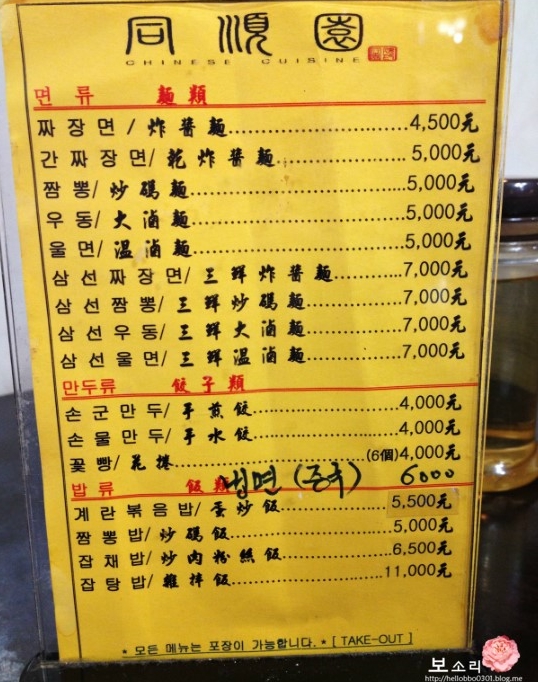 同順園
CHINESE CUISINE
면 류 麵 類
짜 장 면 / 炸 醬 麵..............................4,500元
간 짜 장 면/ 乾 炸 醬 麵...................... 5,000元
짬 뽕/ 炒 碼 麵...................................5,000元
우 동/ 大 滷 麵...................................5,000元
울 면/ 溫 滷 麵...................................5,000元
삼 선 짜 장 면/ 三 鮮 炸 醬 麵............7,000元
삼 선 짬 뽕/ 三 鮮 炒 碼 麵.................7,000元
삼 선 우 동/ 三 鮮 大 滷 麵.................7,000元
삼 선 울 면/ 三 鮮 溫 滷 麵.................7,000元
만두류 餃 子 類
손 군 만 두/ 手 煎 餃..........................4,000元
손 물 만 두/ 手 水 餃..........................4,000元
꽃 빵/ 花 捲...................................(6個)4,000元
냉면 (중국) 6000
밥 류 飯 類
계 란 볶 음 밥/ 蛋 炒 飯.....................5,500元
짬 뽕 밥/ 炒 碼 飯..............................5,000元
잡 채 밥/ 炒 肉 粉 絲 飯.....................6,500元
잡 탕 밥/ 雜 拌 飯..............................11,000元
* 모든 메뉴는 포장이 가능합니다. * [ TAKE-OUT ]
보소리
http://hellobbo0301.blog.me